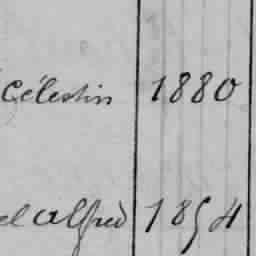 Célestin 1880
el Alfred 1854